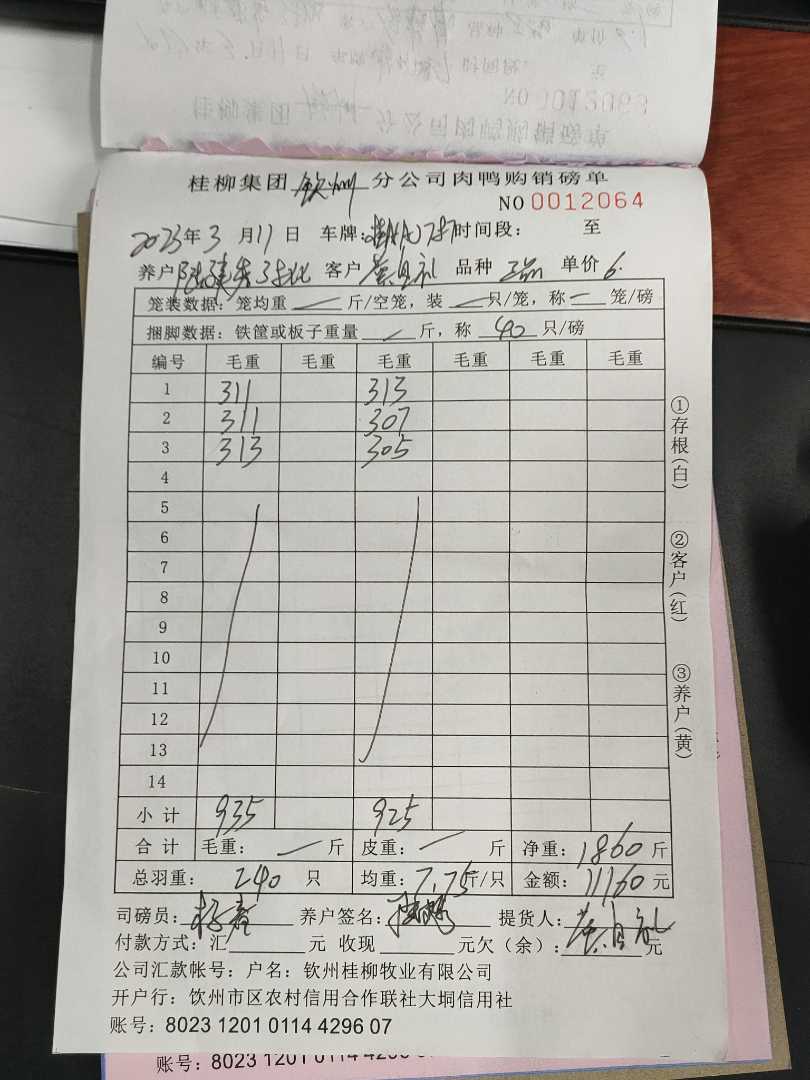 NO 0012063
桂柳集团 钦州 分公司肉鸭购销磅单
NO 0012064
2023年 3 月 11 日 车牌: 787 时间段: 至
养户 客户 黄自礼 品种 单价 6.
笼装数据: 笼均重 — 斤/空笼, 装 — 只/笼, 称 — 笼/磅
捆脚数据: 铁筐或板子重量 — 斤, 称 40 只/磅
编号 毛重 毛重 毛重 毛重 毛重 毛重
1 311 313
2 311 307
3 313 305
4
5
6
7
8
9
10
11
12
13
14
小计 935 925
合计 毛重: — 斤 皮重: — 斤 净重: 1860 斤
总羽重: 240 只 均重: 7.75 斤/只 金额: 11160 元
司磅员: 养户签名: 提货人: 黄自礼
付款方式: 汇 元 收现 元欠(余): 元
公司汇款帐号: 户名: 钦州桂柳牧业有限公司
开户行: 钦州市区农村信用合作联社大垌信用社
账号: 8023 1201 0114 4296 07
账号: 8023 1201 0114 4296
①存根(白)
②客户(红)
③养户(黄)